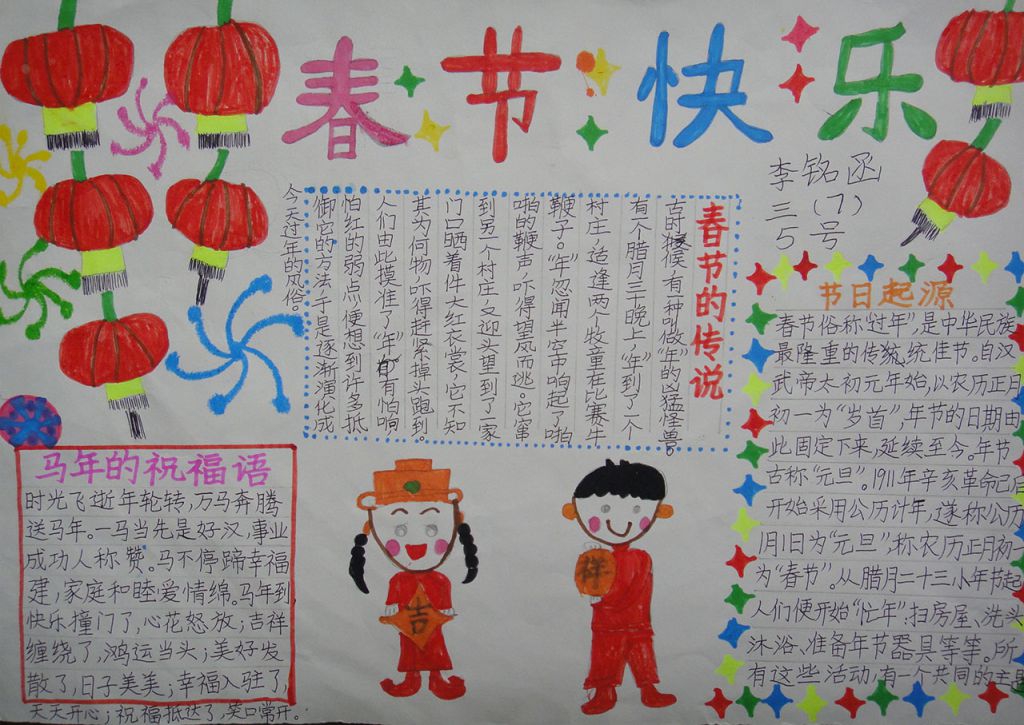 春节快乐
李铭函
三（7）
5号
春节的传说
古时候有一种叫做“年”的凶猛怪兽。
有个腊月三十晚上“年”到了一个
村庄，适逢两个牧童在比赛牛
鞭子。“年”忽闻半空中响起了啪
啪的鞭声，吓得望风而逃。它窜
到另一个村庄，又迎头望到了一家
门口晒着件大红衣裳，它不知
其为何物，吓得赶紧掉头跑到。
人们由此摸准了“年”有怕响
怕红的弱点，便想到许多抵
御它的方法，于是逐渐演化成
今天过年的风俗。
节日起源
春节俗称“过年”，是中华民族
最隆重的传统佳节。自汉
武帝太初元年始，以农历正月
初一为“岁首”，年节的日期由
此固定下来，延续至今。年节
古称“元旦”。1911年辛亥革命已后
开始采用公历计年，遂称公历
1月1日为“元旦”，称农历正月初一
为“春节”。从腊月二十三小年节起
人们便开始“忙年”：扫房屋、洗头
沐浴、准备年节器具等等。所
有这些活动，有一个共同的主题
马年的祝福语
时光飞逝年轮转，万马奔腾
送马年。一马当先是好汉，事业
成功人称赞。马不停蹄幸福
建，家庭和睦爱情绵。马年到
快乐撞门了，心花怒放；吉祥
缠绕了，鸿运当头；美好发
散了，日子美美；幸福入驻了，
天天开心；祝福抵达了，笑口常开。
吉
祥